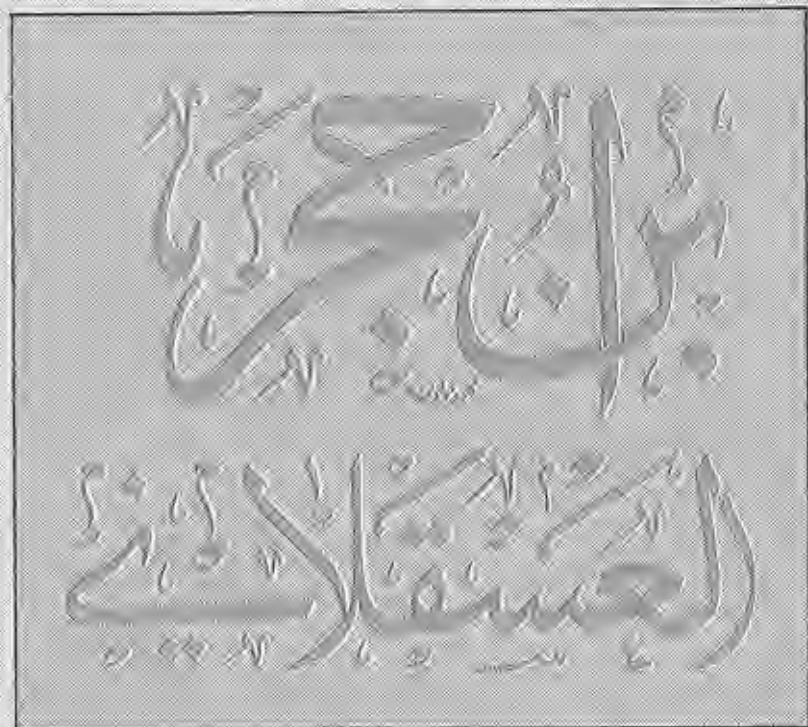 ابن حجر
العسقلاني